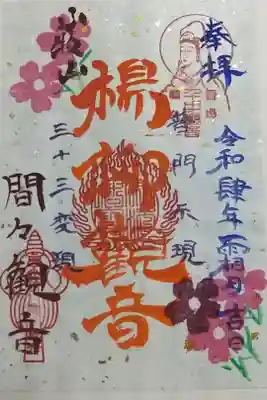 奉拝
令和肆年霜月吉日
普門示現
楊柳観音
三十三変現
間々観音